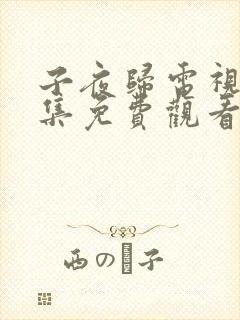 子夜歸電視
集免費觀看
西の子